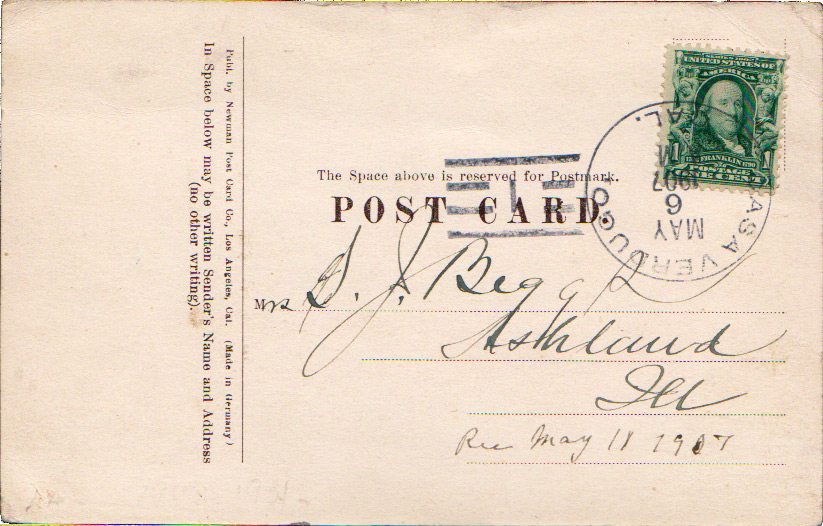 Publ. by Newman Post Card Co., Los Angeles, Cal. (Made in Germany)
In Space below may be written Sender's Name and Address
(no other writing).
SERIES 1902
UNITED STATES OF
AMERICA
FRANKLIN
POSTAGE
1 ONE CENT 1
CASA VERDUGO,
CAL.
MAY
6
1907
M
The Space above is reserved for Postmark.
POST CARD.
Mrs S. J. Beggs
Ashland
Ill
Rec May 18 1907